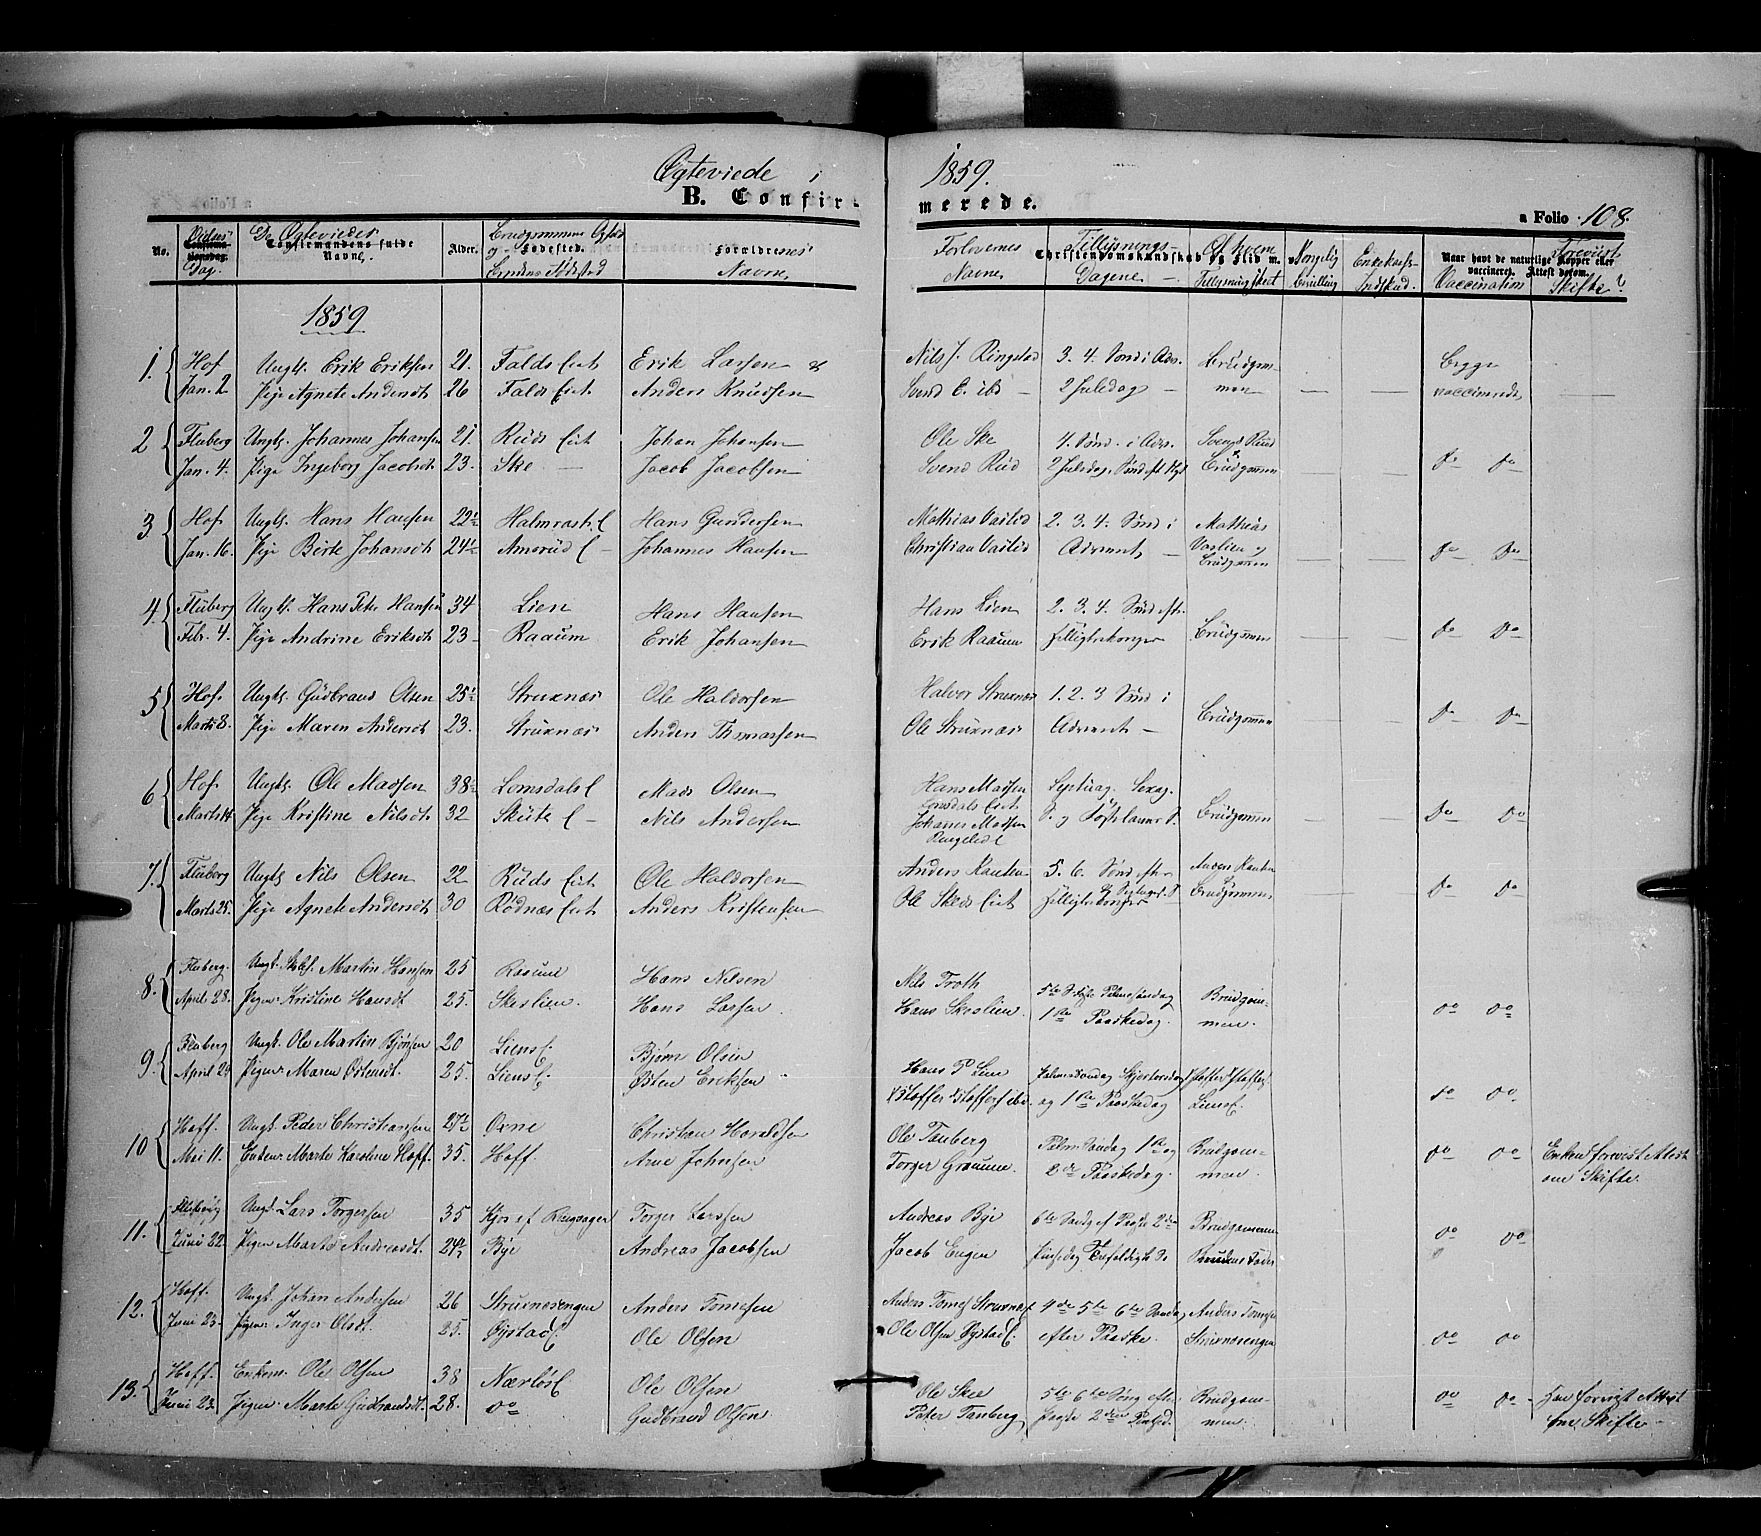 Ægteviede i 1859.
B. Confirmerede.
a Folio 108.
No. Vielses Dag. De Ægteviedes Confirmandens fulde Navne. Alder. Brudgommens og Brudens Fødested Forældrenes Navne Forlovernes Navne Tillysnings-Dagene Christendomskundskab og Flid m. v. Af hvem Tillysning skeet Kongelig Bevilling Enkekasse-Indskud. Naar havt de naturlige Kopper eller vaccineret. Attest derom. Vaccination Forevist Skifte?
1859
1. Hof Ungk. Erik Eriksen 21. Falds Eiet Erik Larsen & Nils J. Ringelid 3. 4. Sønd i Adv. Brudgom- Begge
Jan. 2 Pige Agnete Andersdt 26 Falds Eiet Anders Knudsen Svend E. ibd 2 Juledag men vaccinerede
2 Fluberg Ungk. Johannes Johansen 21. Ruds Eiet Johan Johansen Ole Ske 4. Sønd. i Adv. Svend Rud
Jan. 4. Pige Ingeborg Jacobsdt 23. Ske Jacob Jacobsen Svend Rud 2 Juledag, Sønd eft Nyt Brudgommen do do
3 Hof Ungk. Hans Hansen 22½ Halmrast E Hans Gundersen Mathias Vaslid 2. 3. 4. Sønd i Mathias
Jan. 16. Pige Birte Johansdt 24½ Amerud E Johannes Hansen Christian Vaslid Advent Vaslien og Brudgommen do do
4. Fluberg Ungk. Hans Peter Hansen 34 Lien Hans Hansen Hans Lien 2. 3. 4. Sønd eft.
Febr. 4. Pige Andrine Eriksdt 23 Raaum Erik Johansen Erik Raaum Helligtrekonger Brudgommen do do
5 Hof Ungk. Gudbrand Olsen 25½ Struxnæs Ole Haldorsen Halvor Struxnæs 1. 2. 3 Sønd i
Marts 8. Pige Maren Andersdt 23. Struxnæs Anders Thomassen Ole Struxnæs Advent Brudgommen do do
6 Hof Ungk. Ole Madsen 38½ Lomsdals E Mads Olsen Hans Madsen Lomsdals Eiet Septuag. Sexag.
Marts 14 Pige Kristine Nilsdt. 32 Skute E Nils Andersen Johannes Madsen Ringelid E S. og Fastelavns S. Brudgommen do do
7. Fluberg Ungk Nils Olsen 22 Ruds Eiet Ole Haldorsen Anders Rauten 5. 6. Sønd efter Anders Rauten
Marts 25. Pige Agnete Andersdt 30 Rødnæs Eiet Anders Kristensen Ole Skeds Eiet Helligtrekonger og Septuag. S. Brudgommen do do
8. Fluberg. Ungk. Martin Hansen 25 Raaum Hans Nilsen Nils Troth 5te S. Faste Palmesøndag Brudgom-
April 28. Pigen Kristine Hansdt 25. Skeslien. Hans Larsen Hans Skeslien. 1ste Paaskedag. men. do do
9. Fluberg Ungk. Ole Martin Bjørnsen 20 Liens E. Bjørn Olsen Hans P Lien Palmesøndag Skjertorsdag
April 29 Pigen Maren Østensdt. 25. Liens E. Østen Eriksen Kristoffer Kristoffersen ibid. og 1ste Paaskedag Liens E. do do
10 Hoff. Ungk. Peder Christiansen 27½ Ovne Christian Haraldsen Ole Tanberg Palme Søndag 1ste og Brudgom-
Mai 11. Enken Marte Karoline Hoff. 35. Hoff. Arne Johnsen Torger Graaum. 2den Paaskedag. men. do do Enken forevist Attest om Skifte.
11. Fluberg Ungk. Lars Torgersen 35 Kjos af Ringsager Torger Larsen Andreas Bye 6te Søndg ef Paaske 2den Brudgommen
Juni 22. Pigen Marte Andreasdt. 24½ Bye Andreas Jacobsen Jacob Engen Pinsedag Trefoldigh S. Brudens Fader do do
12. Hoff. Ungk. Johan Andersen 26 Struxnæsengen Anders Tomesen Anders Tomes Struxnæs 4de 5te 6te Søndag Anders Tomesen
Juni 23. Pigen Inger Olsdt. 25. Øistad E. Ole Olsen Ole Olsen Øystad E. efter Paaske. Struxnæsengen do do
13. Hoff. Enkem. Ole Olsen 38 Nærløs E Ole Olsen Ole Skee 5te 6te Søng. efter Brudgom-
Juni 23. Pigen Marte Gudbrandsdt. 28. do Gudbrand Olsen. Peter Tanberg Paaske 2den Pintsed. men. do do Han forevist Attest om Skifte